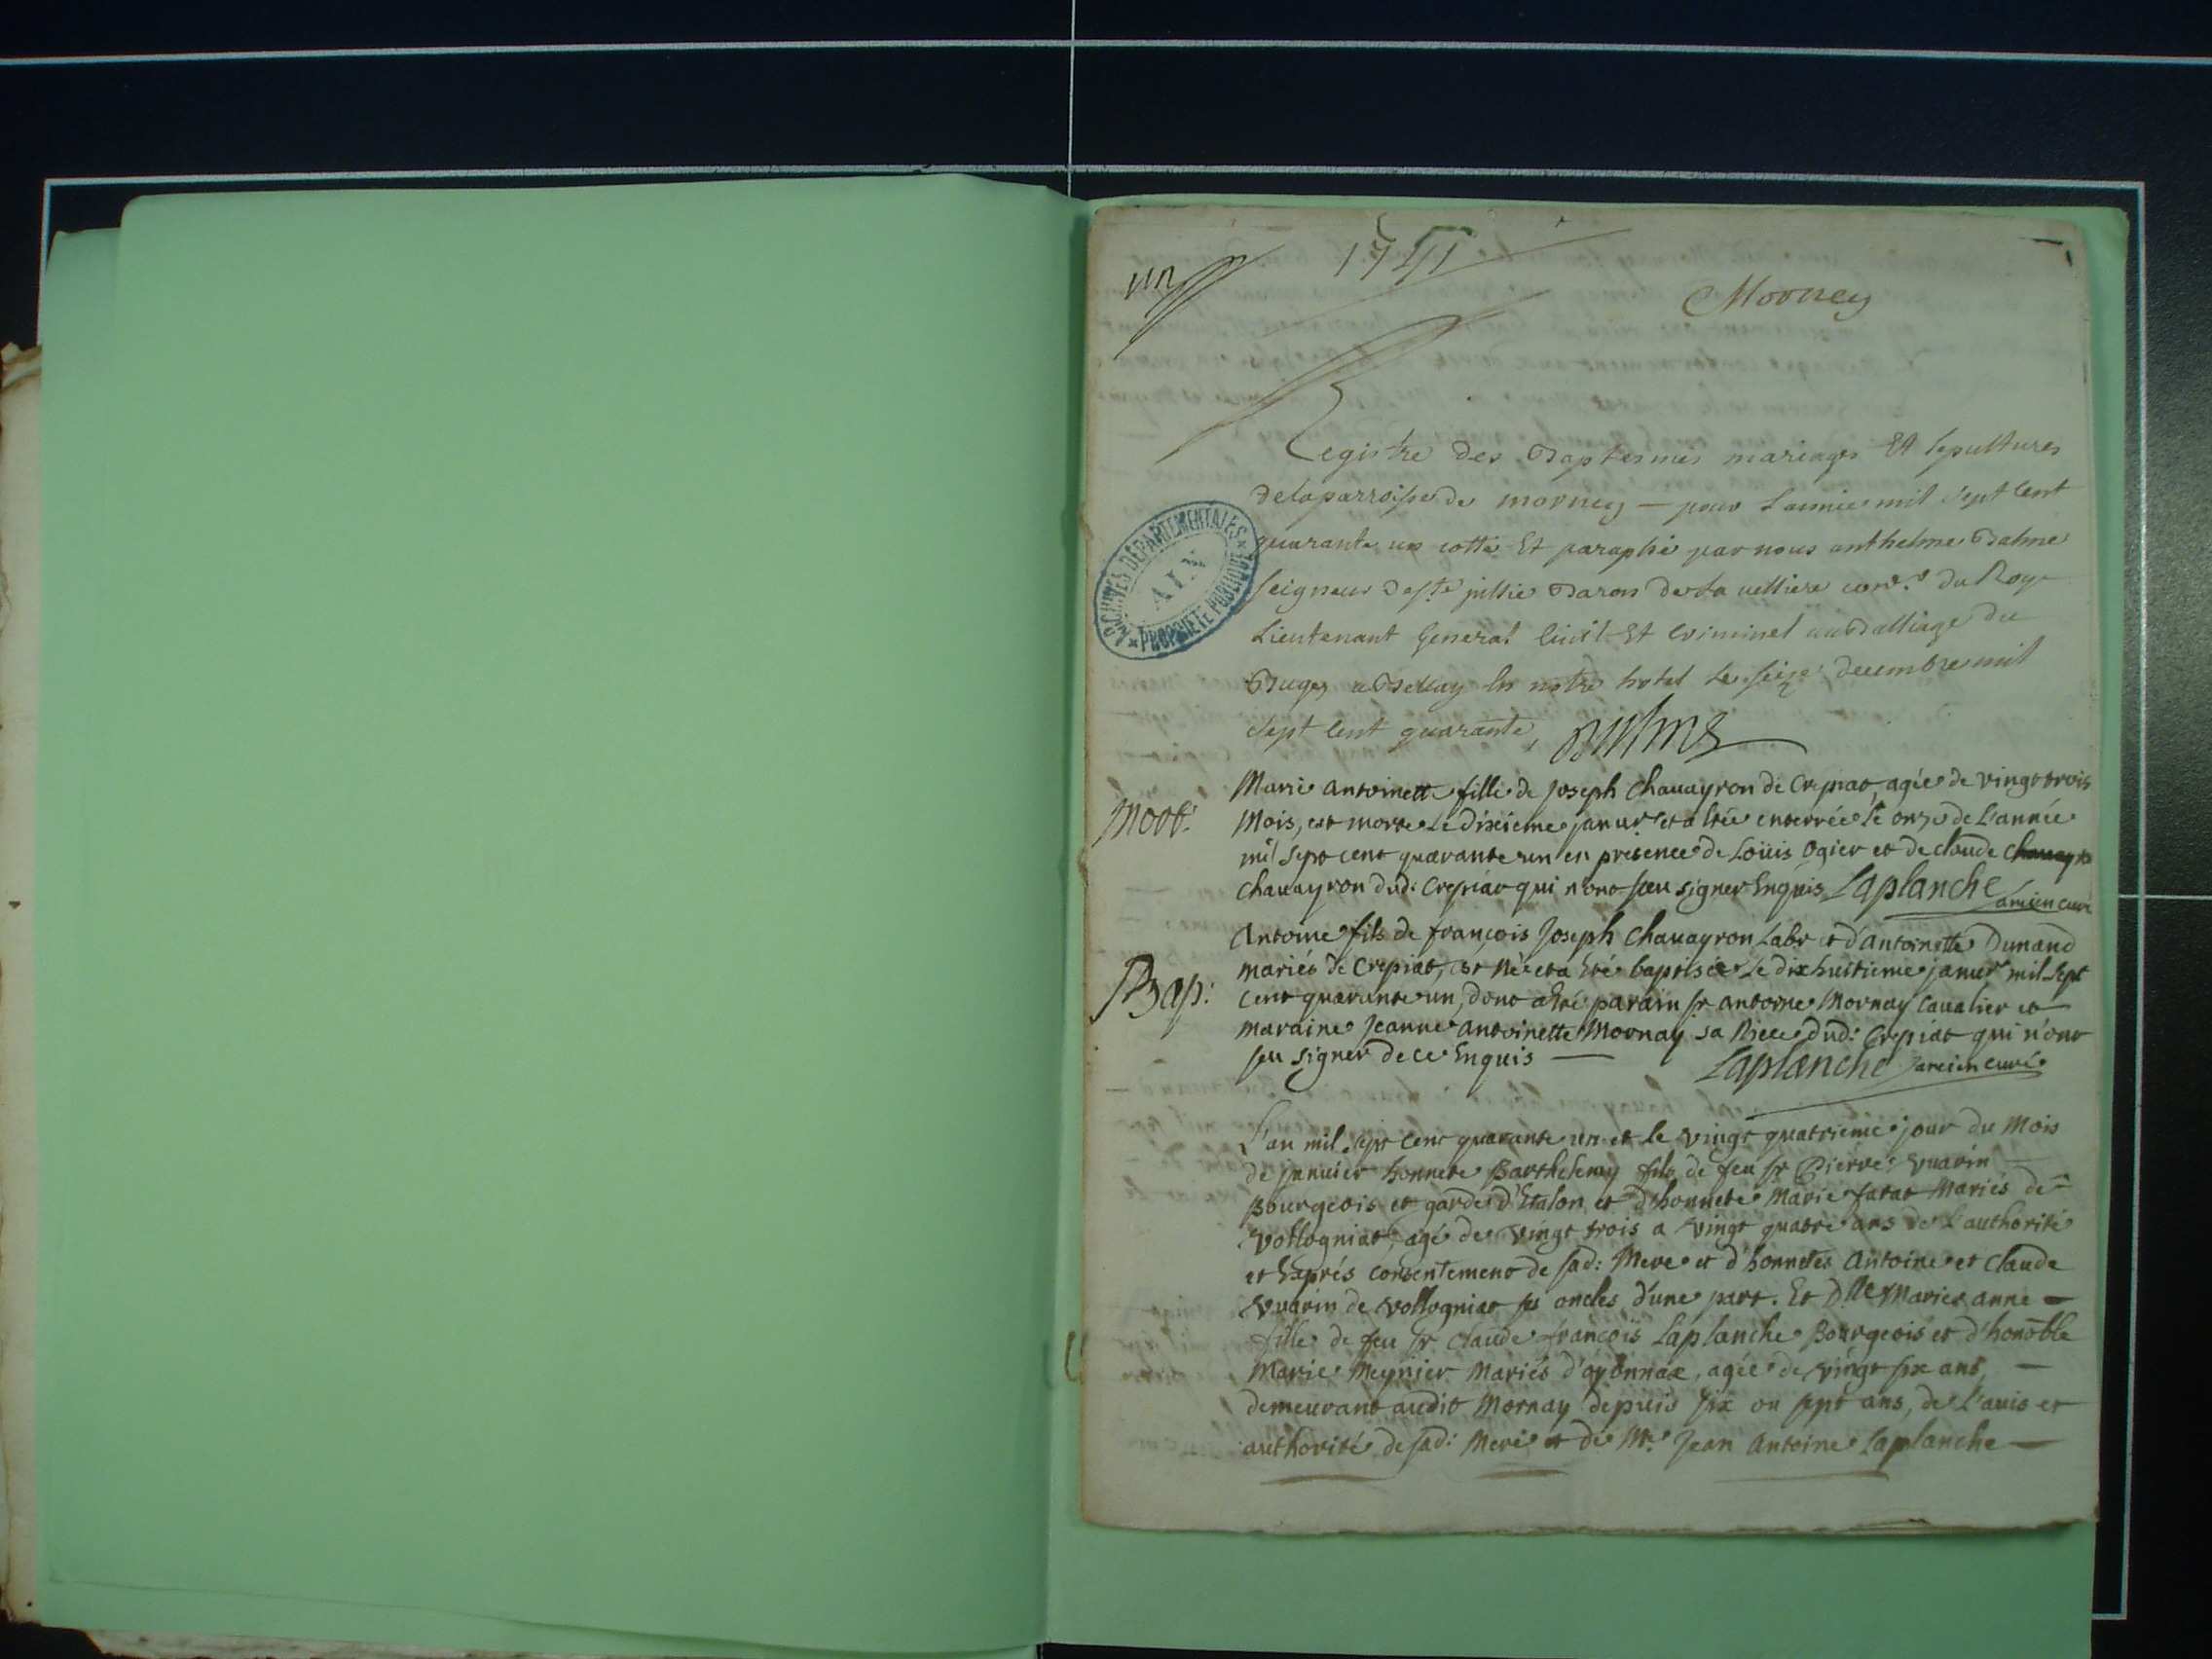 un
1741
Morney
Registre des Baptesmes mariages Et sepultures
de la parroisse de morney — pour L'année mil sept cent
quarante un cotté Et paraphé par nous anthelme Balme
seigneur de Ste jullie Baron de la velliere conr. du Roy
Lieutenant General Civil Et Criminel au Balliage du
Bugey a Bellay En notre hotel Le seize decembre mil
sept cent quarante, Balme
ARCHIVES DÉPARTEMENTALES
AIN
PROPRIÉTÉ PUBLIQUE
Mort.
Marie antoinette fille de Joseph Chauayron de Crepiat, agée de vingt trois
Mois, est morte Le dixieme januer et a Eté enterrée le onze de L'année
mil sept cent quarante un en presence de Loüis Ogier et de claude chauayro
chauayron dud: Crepiat qui n'ont sceu signer Enquis Laplanche ancien curé
Bap:
Antoine fils de françois Joseph Chauayron Labr. et d'antoinette Dunand
mariés de Crepiat, est né et a Eté baptisée Le dix huitieme januer mil sept
cent quarante un, dont a Eté parain sr antoine Mornay Caualier et
maraine Jeanne antoinette Mornay sa Niece dud: Crepiat qui n'ont
seu signer de ce Enquis — Laplanche ancien curé
L'an mil sept cent quarante un et le vingt quatrieme jour du Mois
de januier honnete Barthelemy fils de feu sr Pierre Vuarin
Bourgeois et garde d'Etalon et d'honnete Marie fatat Mariés de
Vollogniat, agé de vingt trois a vingt quatre ans de L'authorité
et Exprés consentement de sad: Mere et d'honnetes Antoine et Claude
Vuarin de Vollogniat ses oncles d'une part. Et Dlle Marie anne —
fille de feu sr Claude françois Laplanche Bourgeois et d'honoble
Marie Meynier Mariés d'oyonnax, agée de vingt six ans —
demeurant audit Mornay depuis six ou sept ans, de L'auis et
authorité de sad: Mere et de Mre. Jean Antoine Laplanche —